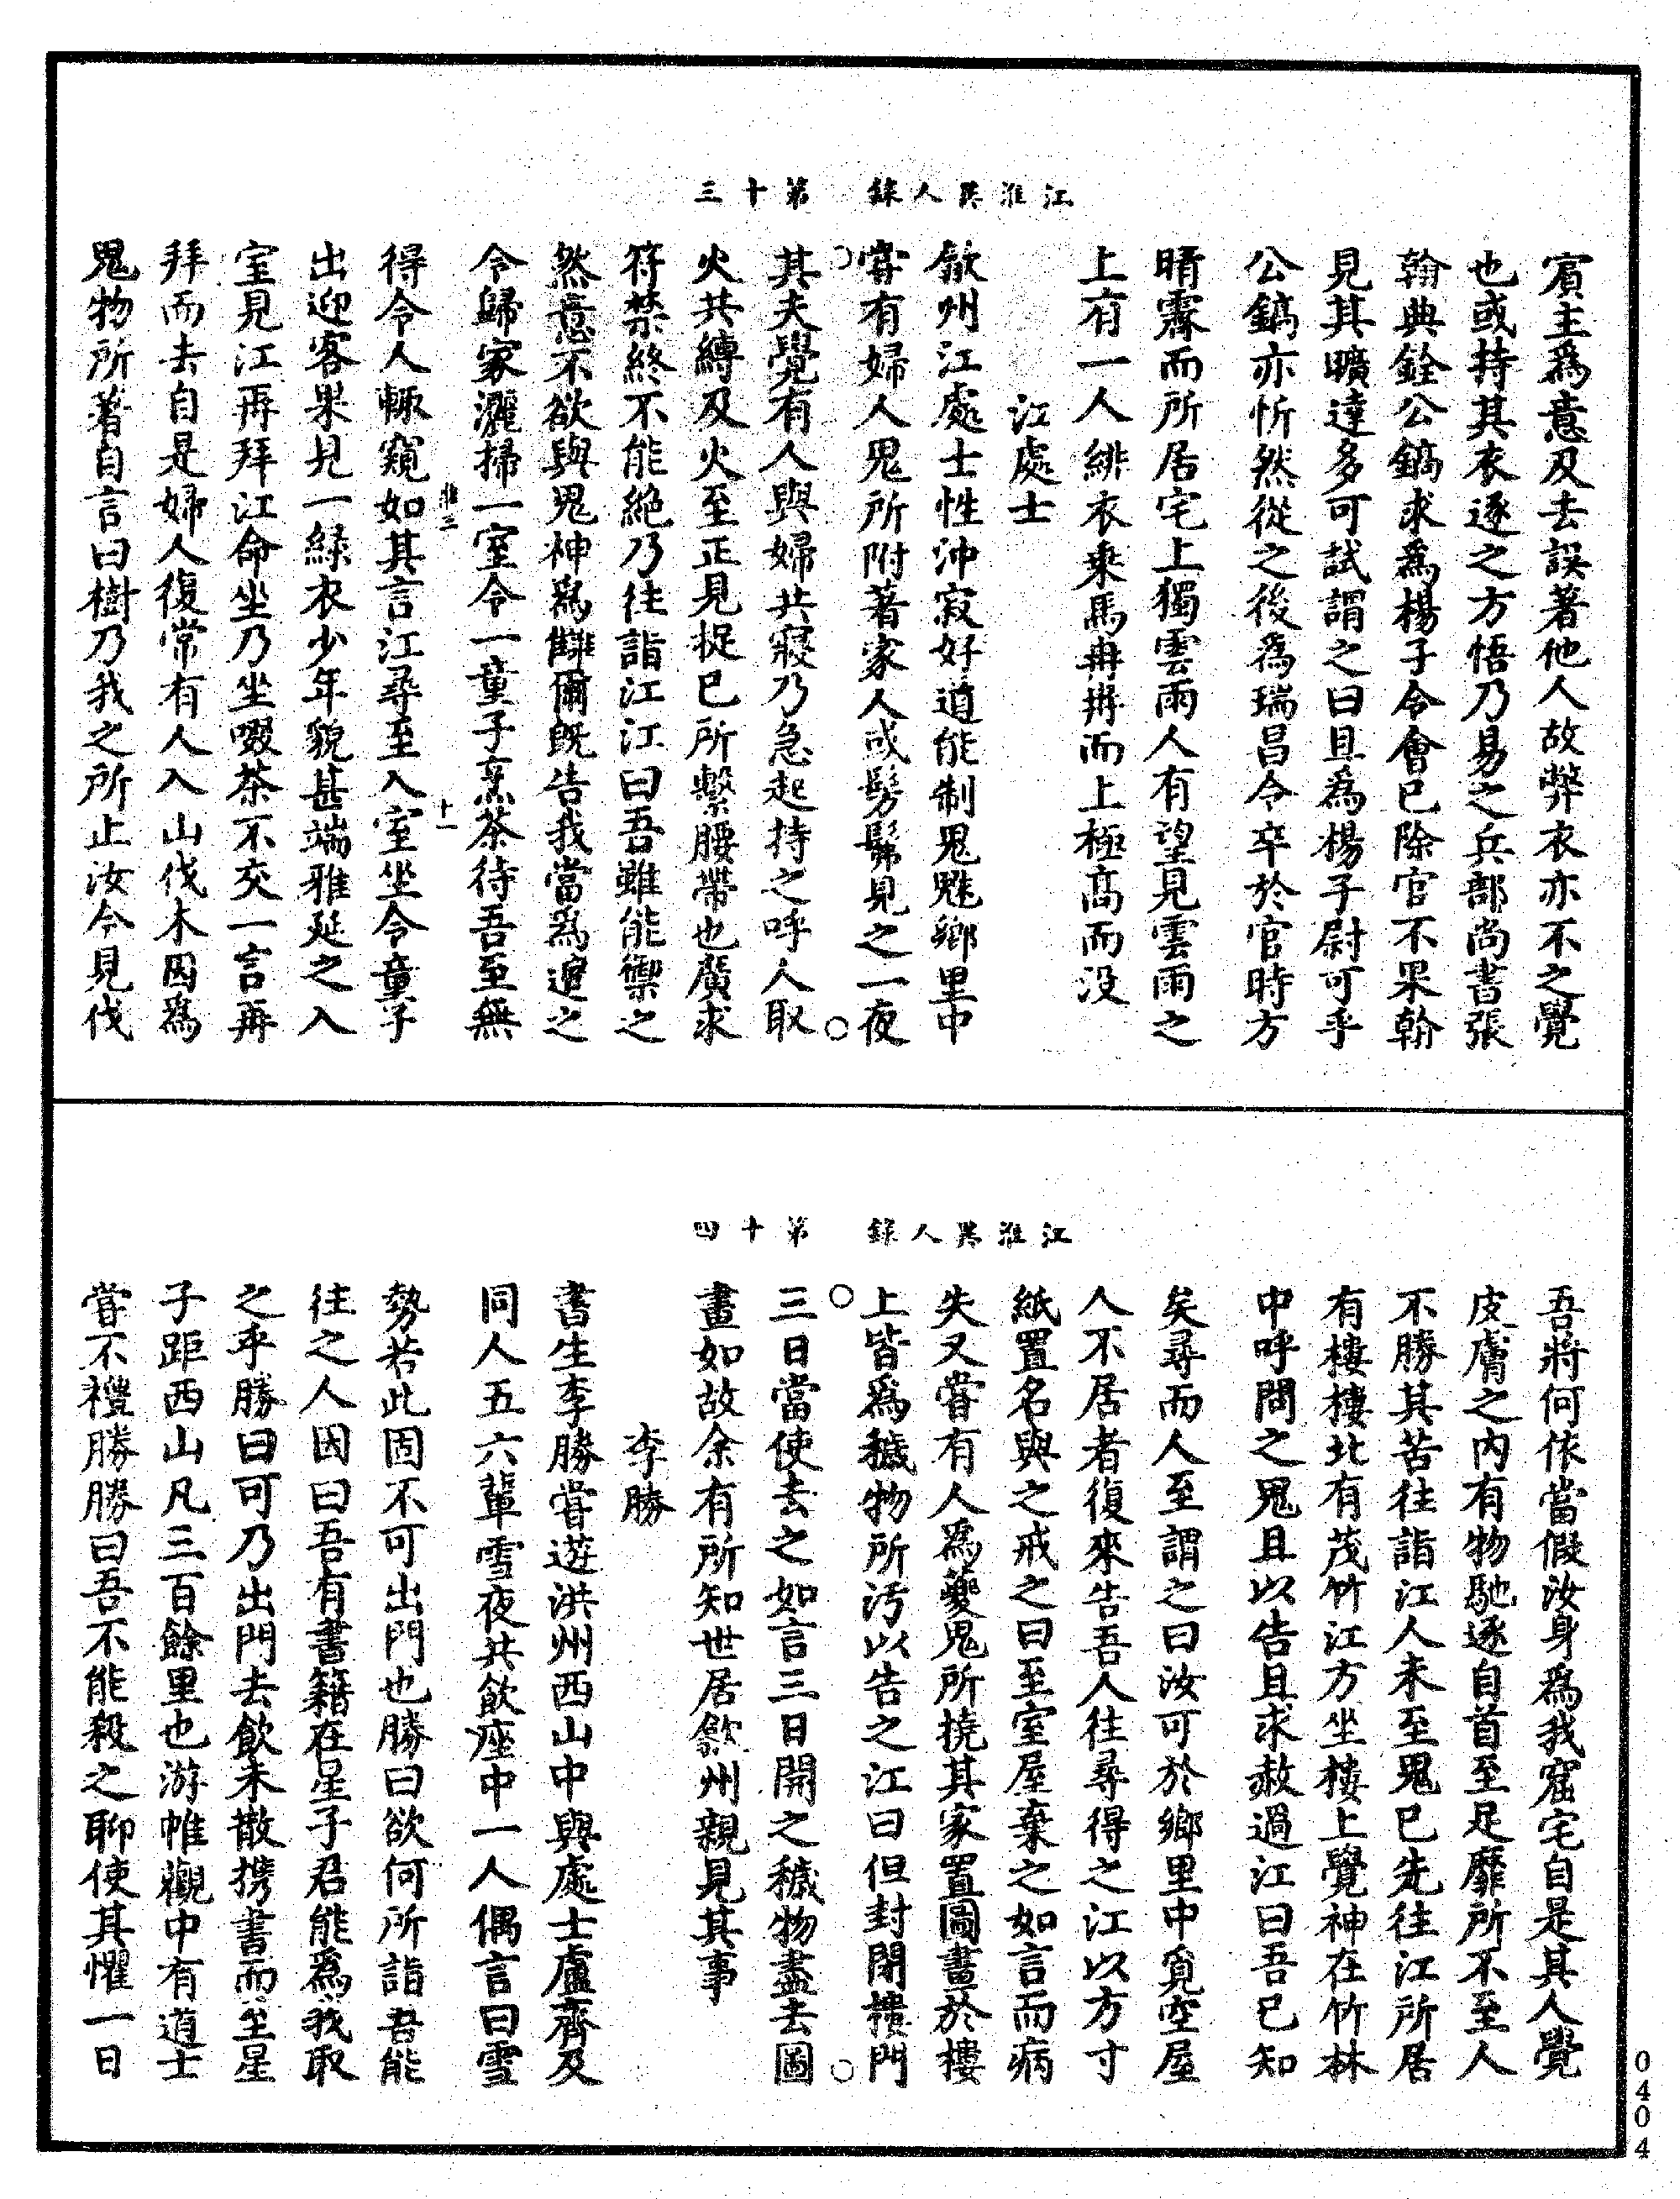 江淮異人錄　第十三
賔主爲意及去誤著他人故弊衣亦不之覺
也或持其衣逐之方悟乃易之兵部尚書張
翰典銓公鎬求爲楊子令會已除官不果翰
見其曠達多可試謂之曰且爲楊子尉可乎
公鎬亦忻然從之後爲瑞昌令卒於官時方
晴霽而所居宅上獨雲雨人有望見雲雨之
上有一人緋衣乗馬冉冉而上極髙而没
江處士
歙州江處士性沖寂好道能制鬼魅鄉里中
嘗有婦人鬼所附著家人或髣髴見之一夜
其夫覺有人與婦共寢乃急起持之呼人取
火共縛及火至正見捉已所繫腰帶也廣求
符禁終不能絶乃往詣江江曰吾雖能禦之
然意不欲與鬼神爲讎爾既告我當爲遣之
令歸家灑掃一室令一童子烹茶待吾至無
淮三　十一
得令人輙窺如其言江尋至入室坐令童子
出迎客果見一緑衣少年貌甚端雅延之入
室見江再拜江命坐乃坐啜茶不交一言再
拜而去自是婦人復常有人入山伐木因爲
鬼物所著自言曰樹乃我之所止汝今見伐
江淮異人錄　第十四
吾將何依當假汝身爲我窟宅自是其人覺
皮膚之内有物馳逐自首至足靡所不至人
不勝其苦往詣江人未至鬼已先往江所居
有樓樓北有茂竹江方坐樓上覺神在竹林
中呼問之鬼且以告且求赦過江曰吾已知
矣尋而人至謂之曰汝可於鄉里中覓空屋
人不居者復來告吾人往尋得之江以方寸
紙置名與之戒之曰至室屋棄之如言而病
失又嘗有人爲夔鬼所撓其家置圖畫於樓
上皆爲穢物所汚以告之江曰但封閉樓門
三日當使去之如言三日開之穢物盡去圖
畫如故余有所知世居歙州親見其事
李勝
書生李勝嘗遊洪州西山中與處士盧齊及
同人五六輩雪夜共飲座中一人偶言曰雪
勢若此固不可出門也勝曰欲何所詣吾能
往之人因曰吾有書籍在星子君能爲我取
之乎勝曰可乃出門去飲未散携書而至星
子距西山凡三百餘里也游帷觀中有道士
嘗不禮勝勝曰吾不能殺之聊使其懼一日
0404